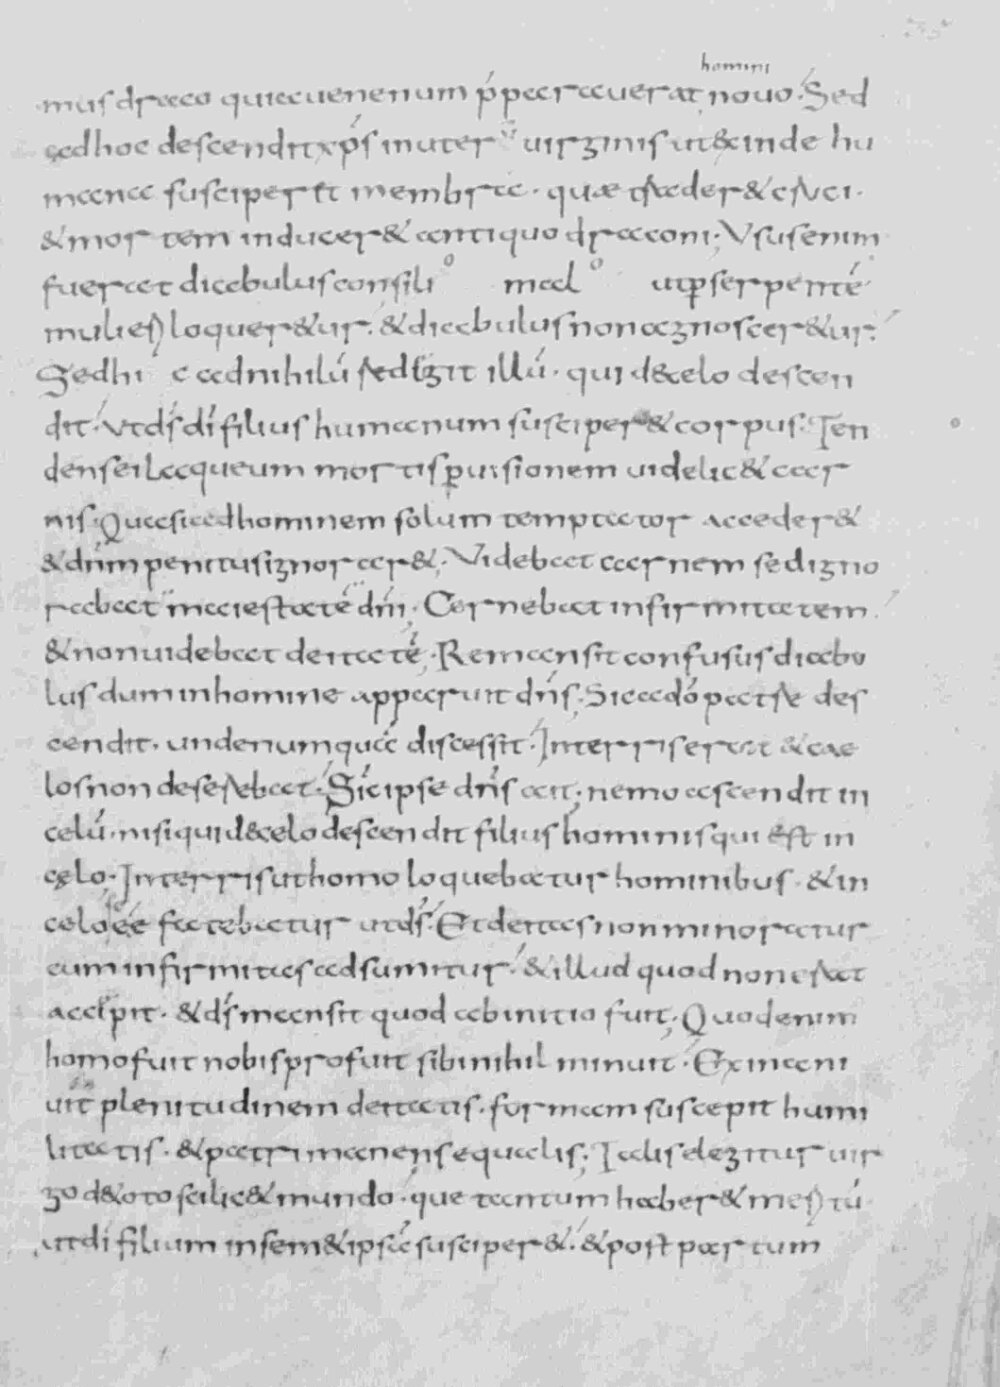 homini
mus draco quia uenenum p̄parauerat nouo. Sed
ad hoc descendit xp̄s in uterū uirginis ut & inde hu
mana susciper& membra. quæ trader& cruci.
& mortem inducer& antiquo draconi; Usus enim
fuerat diabolus consilio malo ut ꝑ serpentē
mulieri loquer&ur. & diabulus non agnoscer&ur.
Sed hic ad nihilū redigit illū. qui d& celo descen
dit. Ut dī filius humanum susciper& corpus. Ten
dens ei laqueum mortis ꝑ uisionem uidelic& car
nis. Quasi ad hominem solum temptator acceder&
& dn̄m penitus ignorar&. Videbat carnem sed igno
rabat maiestatē dn̄i; Cernebat infirmitatem.
& non uidebat deitatē; Remansit confusus diabo
lus dum in homine apparuit dn̄s; Sic ad o patre des
cendit. unde numquā discessit. In terris erat & cae
los non deserebat. Sic ipse dn̄s ait; nemo ascendit in
celū. nisi qui d& celo descendit filius hominis qui est in
celo. In terris ut homo loquebatur hominibus. & in
celo fatebatur ut ds̄. Et deitas non minoratur
cum infirmitas adsumitur. & illud quod non erat
accepit. & ds̄ mansit quod ab initio fuit; Quod enim
homo fuit nobis profuit sibi nihil minuit. Exinani
uit plenitudinem deitatis. formam suscepit humi
litatis. & patri manens equalis; Talis elegitur uir
go d& oto scilic& mundo. que tantum haber& meritū
ut dī filium in sem&ipsā susciper&. & post partum